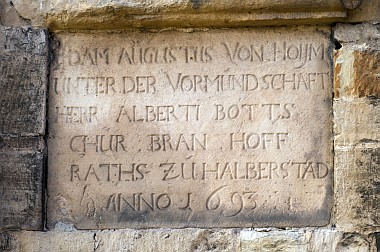 ADAM AUGUSTUS VON HOYM
UNTER DER VORMUNDSCHAFT
HERR ALBERTI BOTTS
CHUR · BRAN · HOFF
RATHS ZU HALBERSTAD
ANNO 1693